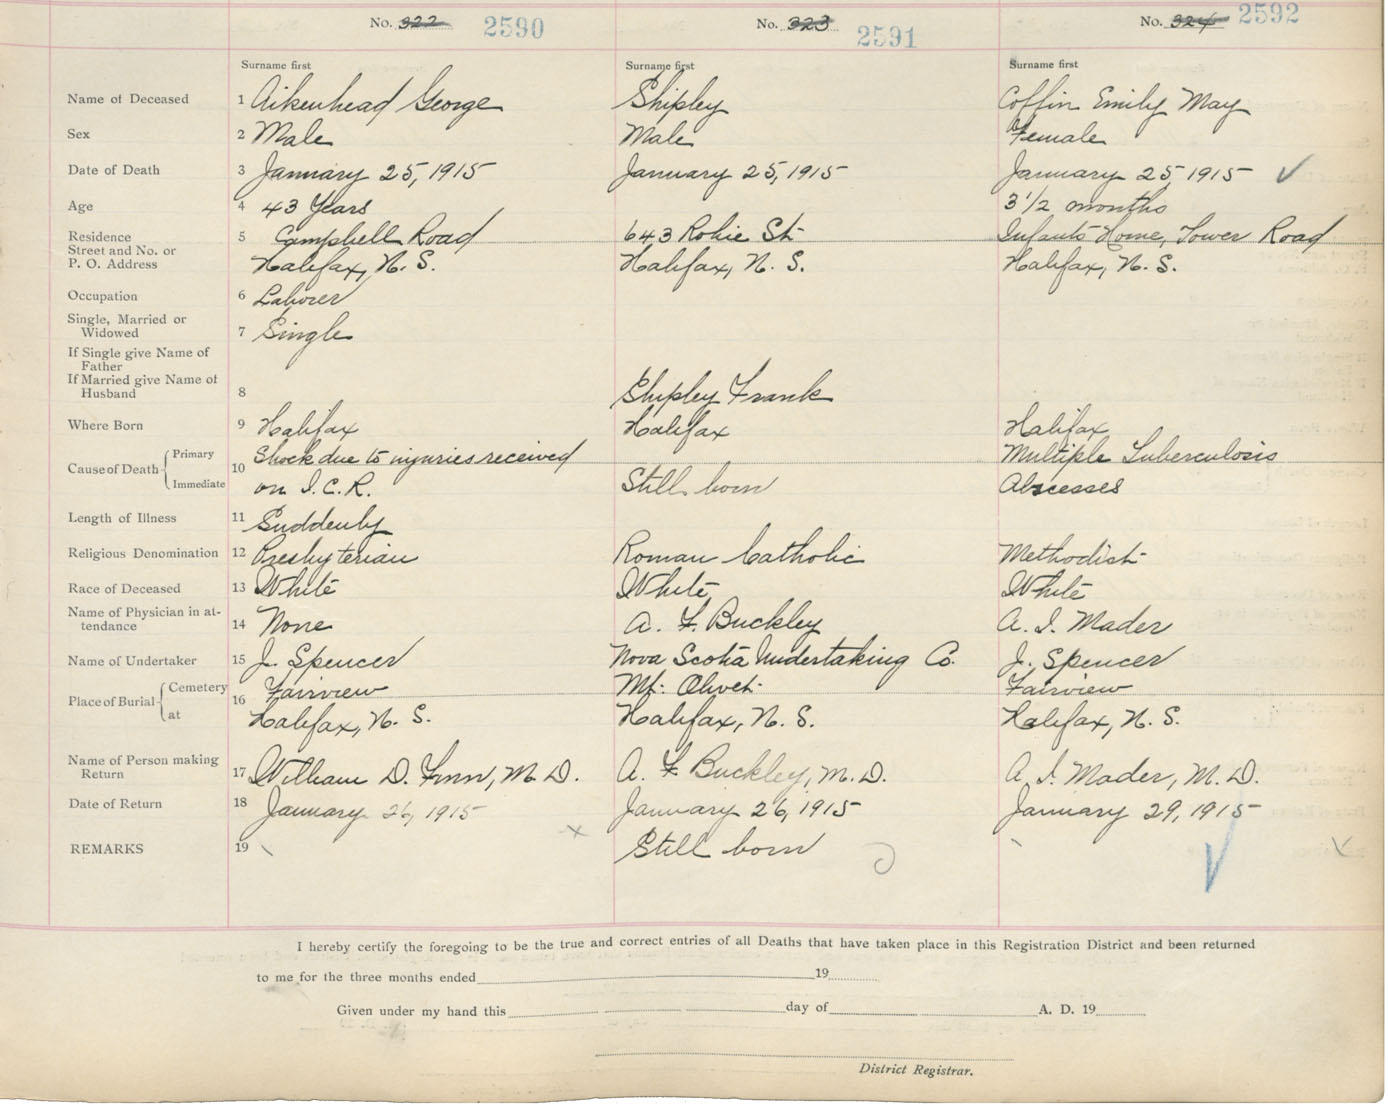 No. 322 2590 No. 323 2591 No. 324 2592
Surname first Surname first Surname first
Name of Deceased 1 Aikenhead George Shipley Coffin Emily May
Sex 2 Male Male Female
Date of Death 3 January 25, 1915 January 25, 1915 January 25, 1915
Age 4 43 Years 3 1/2 months
Residence 5 Campbell Road 643 Robie St Infants Home, Tower Road
Street and No. or
P. O. Address Halifax, N. S. Halifax, N. S. Halifax, N. S.
Occupation 6 Laborer
Single, Married or
Widowed 7 Single
If Single give Name of
Father
If Married give Name of
Husband 8 Shipley Frank
Where Born 9 Halifax Halifax Halifax
Cause of Death Primary 10 Shock due to injuries received Multiple Tuberculosis
Immediate on I.C.R. Still born Abscesses
Length of Illness 11 Suddenly
Religious Denomination 12 Presbyterian Roman Catholic Methodist
Race of Deceased 13 White White White
Name of Physician in at-
tendance 14 None A. F. Buckley A. I. Mader
Name of Undertaker 15 J. Spencer Nova Scotia Undertaking Co. J. Spencer
Place of Burial Cemetery 16 Fairview Mt. Olivet Fairview
at Halifax, N. S. Halifax, N. S. Halifax, N. S.
Name of Person making
Return 17 William D. Finn, M. D. A. F. Buckley, M. D. A. I. Mader, M. D.
Date of Return 18 January 26, 1915 January 26, 1915 January 29, 1915
REMARKS 19 Still born
I hereby certify the foregoing to be the true and correct entries of all Deaths that have taken place in this Registration District and been returned
to me for the three months ended 19
Given under my hand this day of A. D. 19
District Registrar.